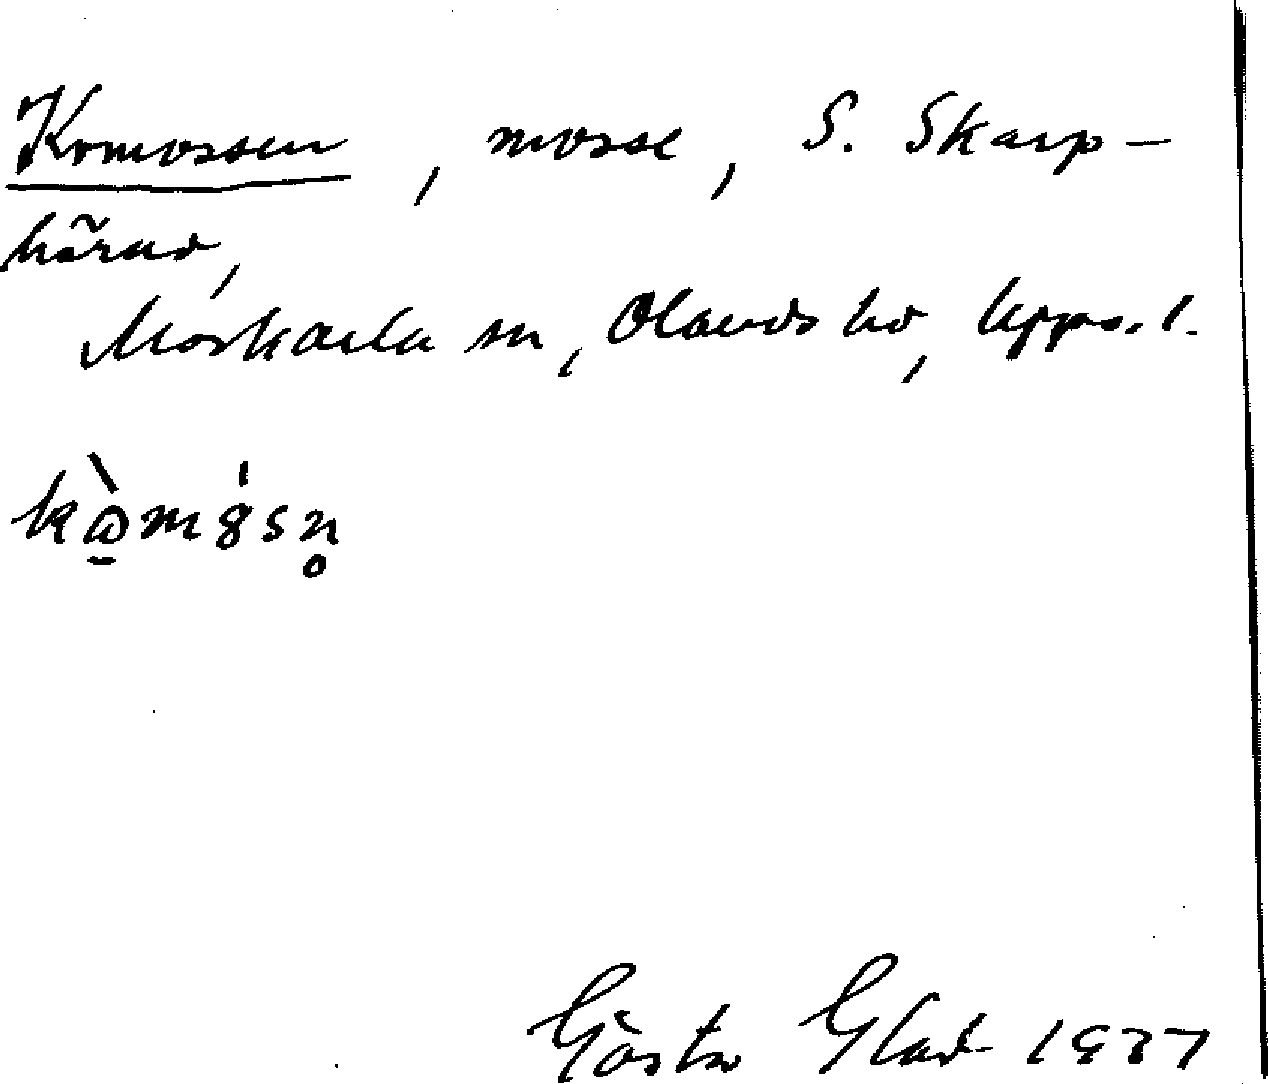 Komossen, mosse, S. Skarp-
härad,
Morkarla sn, Olands hd, Upps. l.
kòmósn̥
Gösta Glad 1937